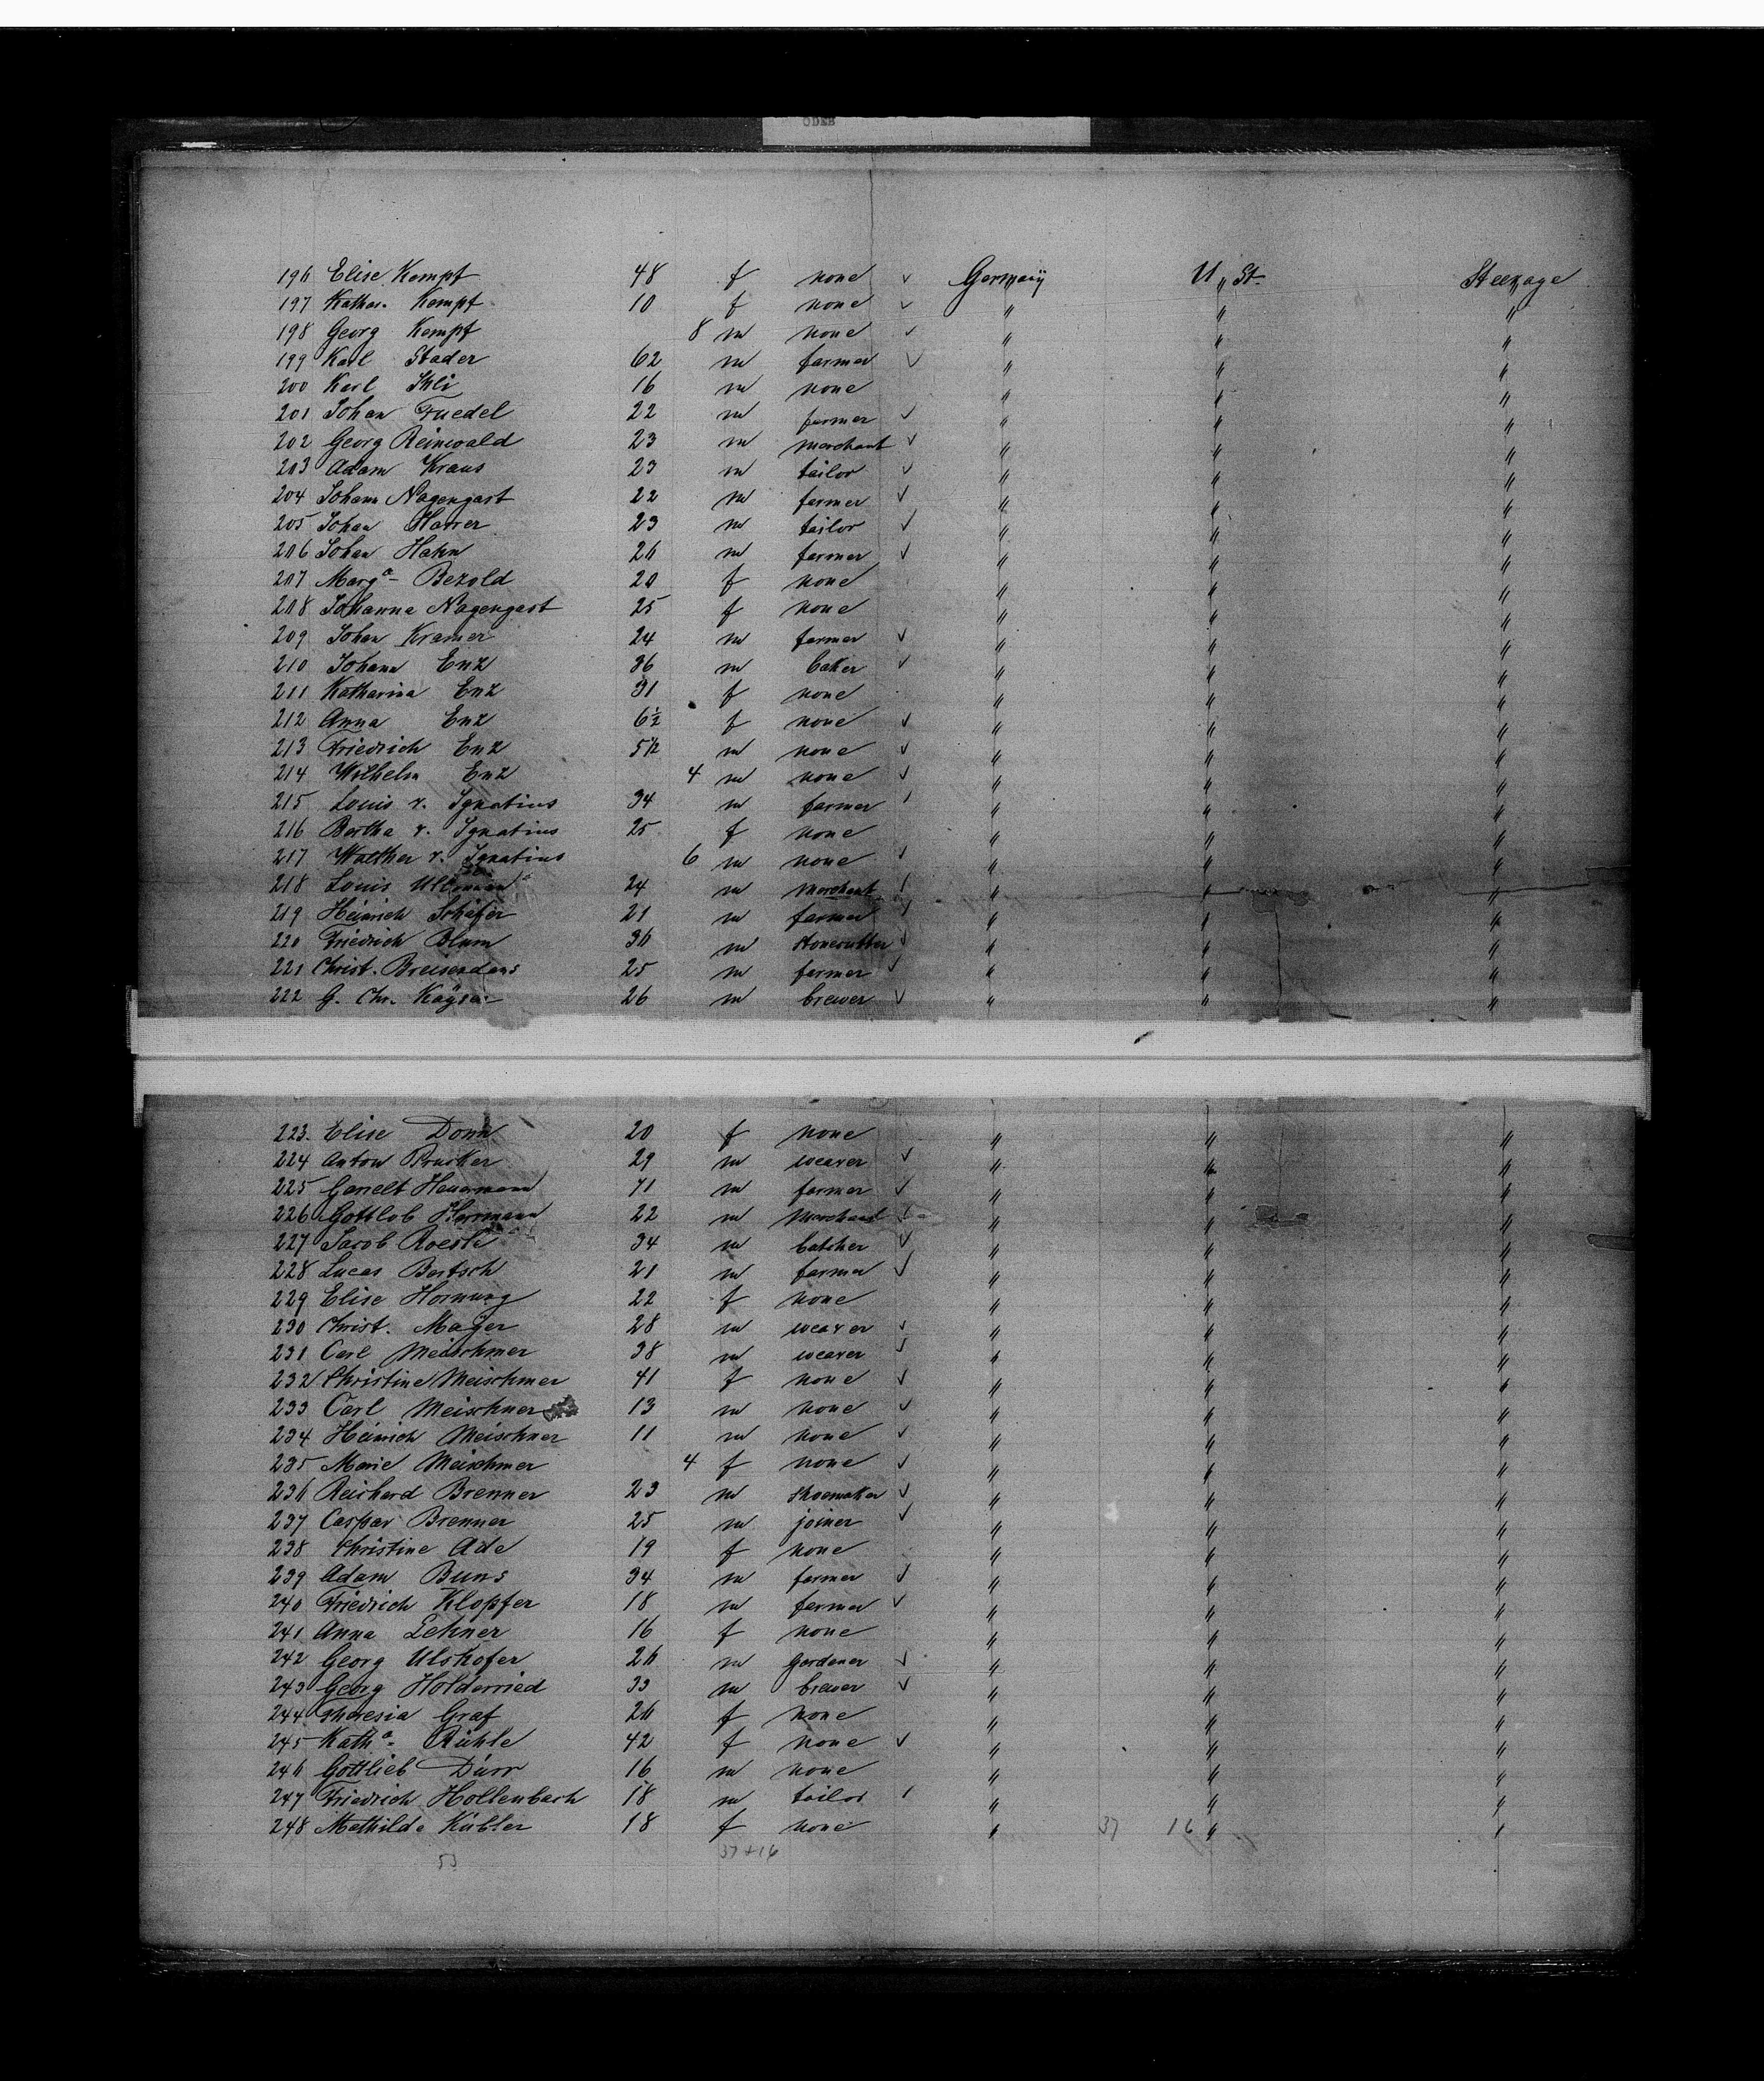 196 Elise Kempf 48 f none ✓ Germany U. St. Steerage
197 Kathar. Kempf 10 f none ✓ " " "
198 Georg Kempf 8 m none ✓ " " "
199 Karl Stader 62 m farmer ✓ " " "
200 Karl Ihli 16 m none " " "
201 Johan Fuedel 22 m farmer ✓ " " "
202 Georg Reinwald 23 m merchant ✓ " " "
203 Adam Kraus 23 m tailor ✓ " " "
204 Johann Nagengast 22 m farmer ✓ " " "
205 Johan Harrer 23 m tailor ✓ " " "
206 Johan Hahn 26 m farmer ✓ " " "
207 Marga. Bezold 20 f none " " "
208 Johanna Nagengast 25 f none " " "
209 Johan Kramer 24 m farmer ✓ " " "
210 Johann Enz 36 m baker ✓ " " "
211 Katharina Enz 31 f none " " "
212 Anna Enz 6½ f none ✓ " " "
213 Friedrich Enz 5½ m none ✓ " " "
214 Wilhelm Enz 4 m none ✓ " " "
215 Louis v. Ignatius 34 m farmer ✓ " " "
216 Bertha v. Ignatius 25 f none " " "
217 Walther v. Ignatius 6 m none ✓ " " "
218 Louis Ullmann 24 m merchant ✓ " " "
219 Heinrich Schäfer 21 m farmer ✓ " " "
220 Friedrich Blum 36 m stonecutter ✓ " " "
221 Christ. 25 m farmer ✓ " " "
222 G. Chr. Kayser 26 m brewer ✓ " " "
223. Elise Donn 20 f none " " "
224 Anton Brucker 29 m weaver ✓ " " "
225 Garrelt Heuermann 71 m farmer ✓ " " "
226 Gottlob Herrmann 22 m merchant ✓ " " "
227 Jacob Roesli 34 m butcher ✓ " " "
228 Lucas Bertsch 21 m farmer ✓ " " "
229 Elise Hornung 22 f none " " "
230 Christ. Mayer 28 m weaver ✓ " " "
231 Carl Meischner 38 m weaver ✓ " " "
232 Christine Meischner 41 f none ✓ " " "
233 Carl Meischner 13 m none ✓ " " "
234 Heinrich Meischner 11 m none ✓ " " "
235 Marie Meischner 4 f none ✓ " " "
236 Reichard Brenner 23 m shoemaker ✓ " " "
237 Caspar Brenner 25 m joiner ✓ " " "
238 Christine Ade 19 f none " " "
239 Adam Buns 34 m farmer ✓ " " "
240 Friedrich Klopfer 18 m farmer ✓ " " "
241 Anna Lehner 16 f none " " "
242 Georg Ulshofer 26 m gardener ✓ " " "
243 Georg Holderried 33 m brewer ✓ " " "
244 Theresia Graf 26 f none " " "
245 Katha. Rühle 42 f none ✓ " " "
246 Gottlieb Dürr 16 m none " " "
247 Friedrich Hollenbach 18 m tailor ✓ " " "
248 Mathilde Kübler 18 f none " 37 16 " "
53 37+16